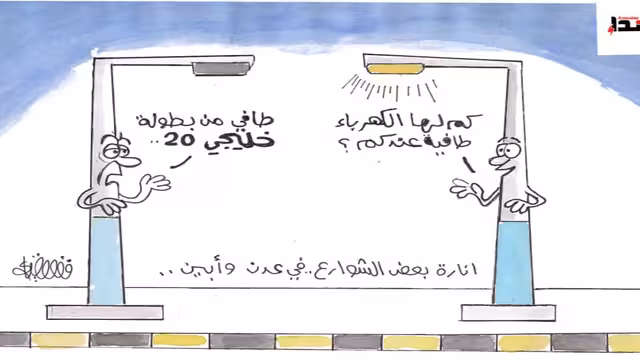 كم لها الكهرباء
طافية عندكم؟
طافي من بطولة
خليجي 20..
انارة بعض الشوارع.. في عدن وأبين..